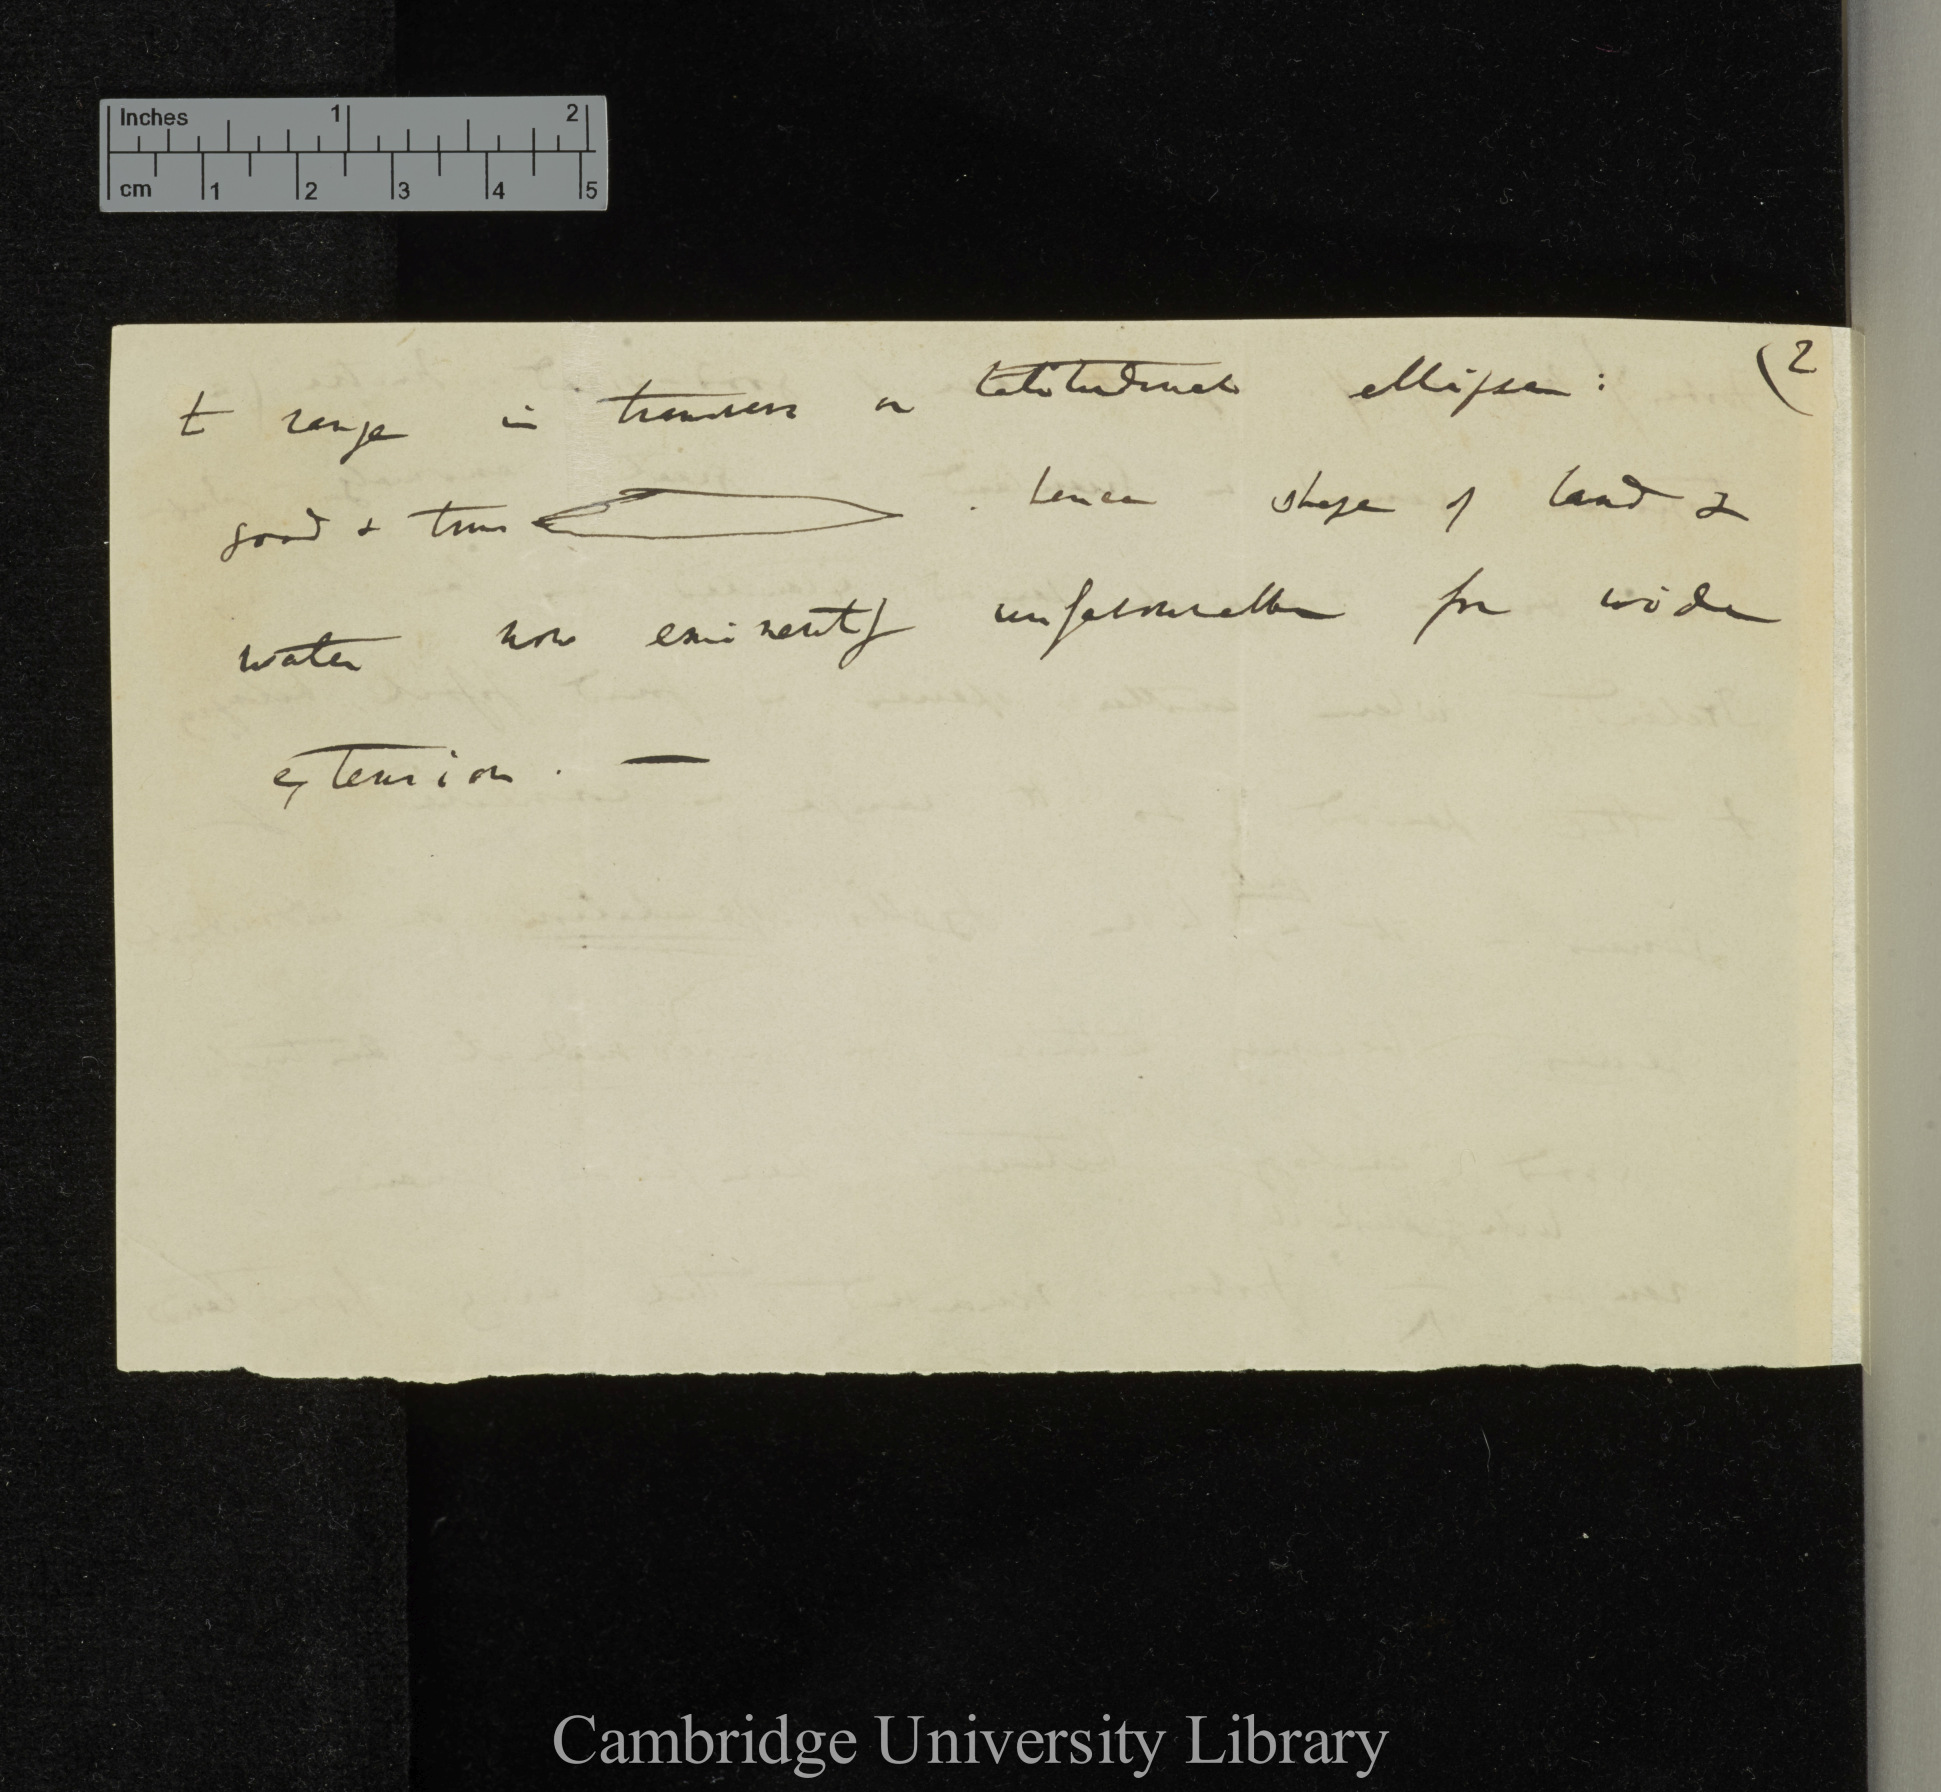 Inches 1 2
cm 1 2 3 4 5
(2
to range in transverse or latitudinal ellipse:
good & true . hence shape of land &
water now eminently unfavourable for wide
extension. —
Cambridge University Library